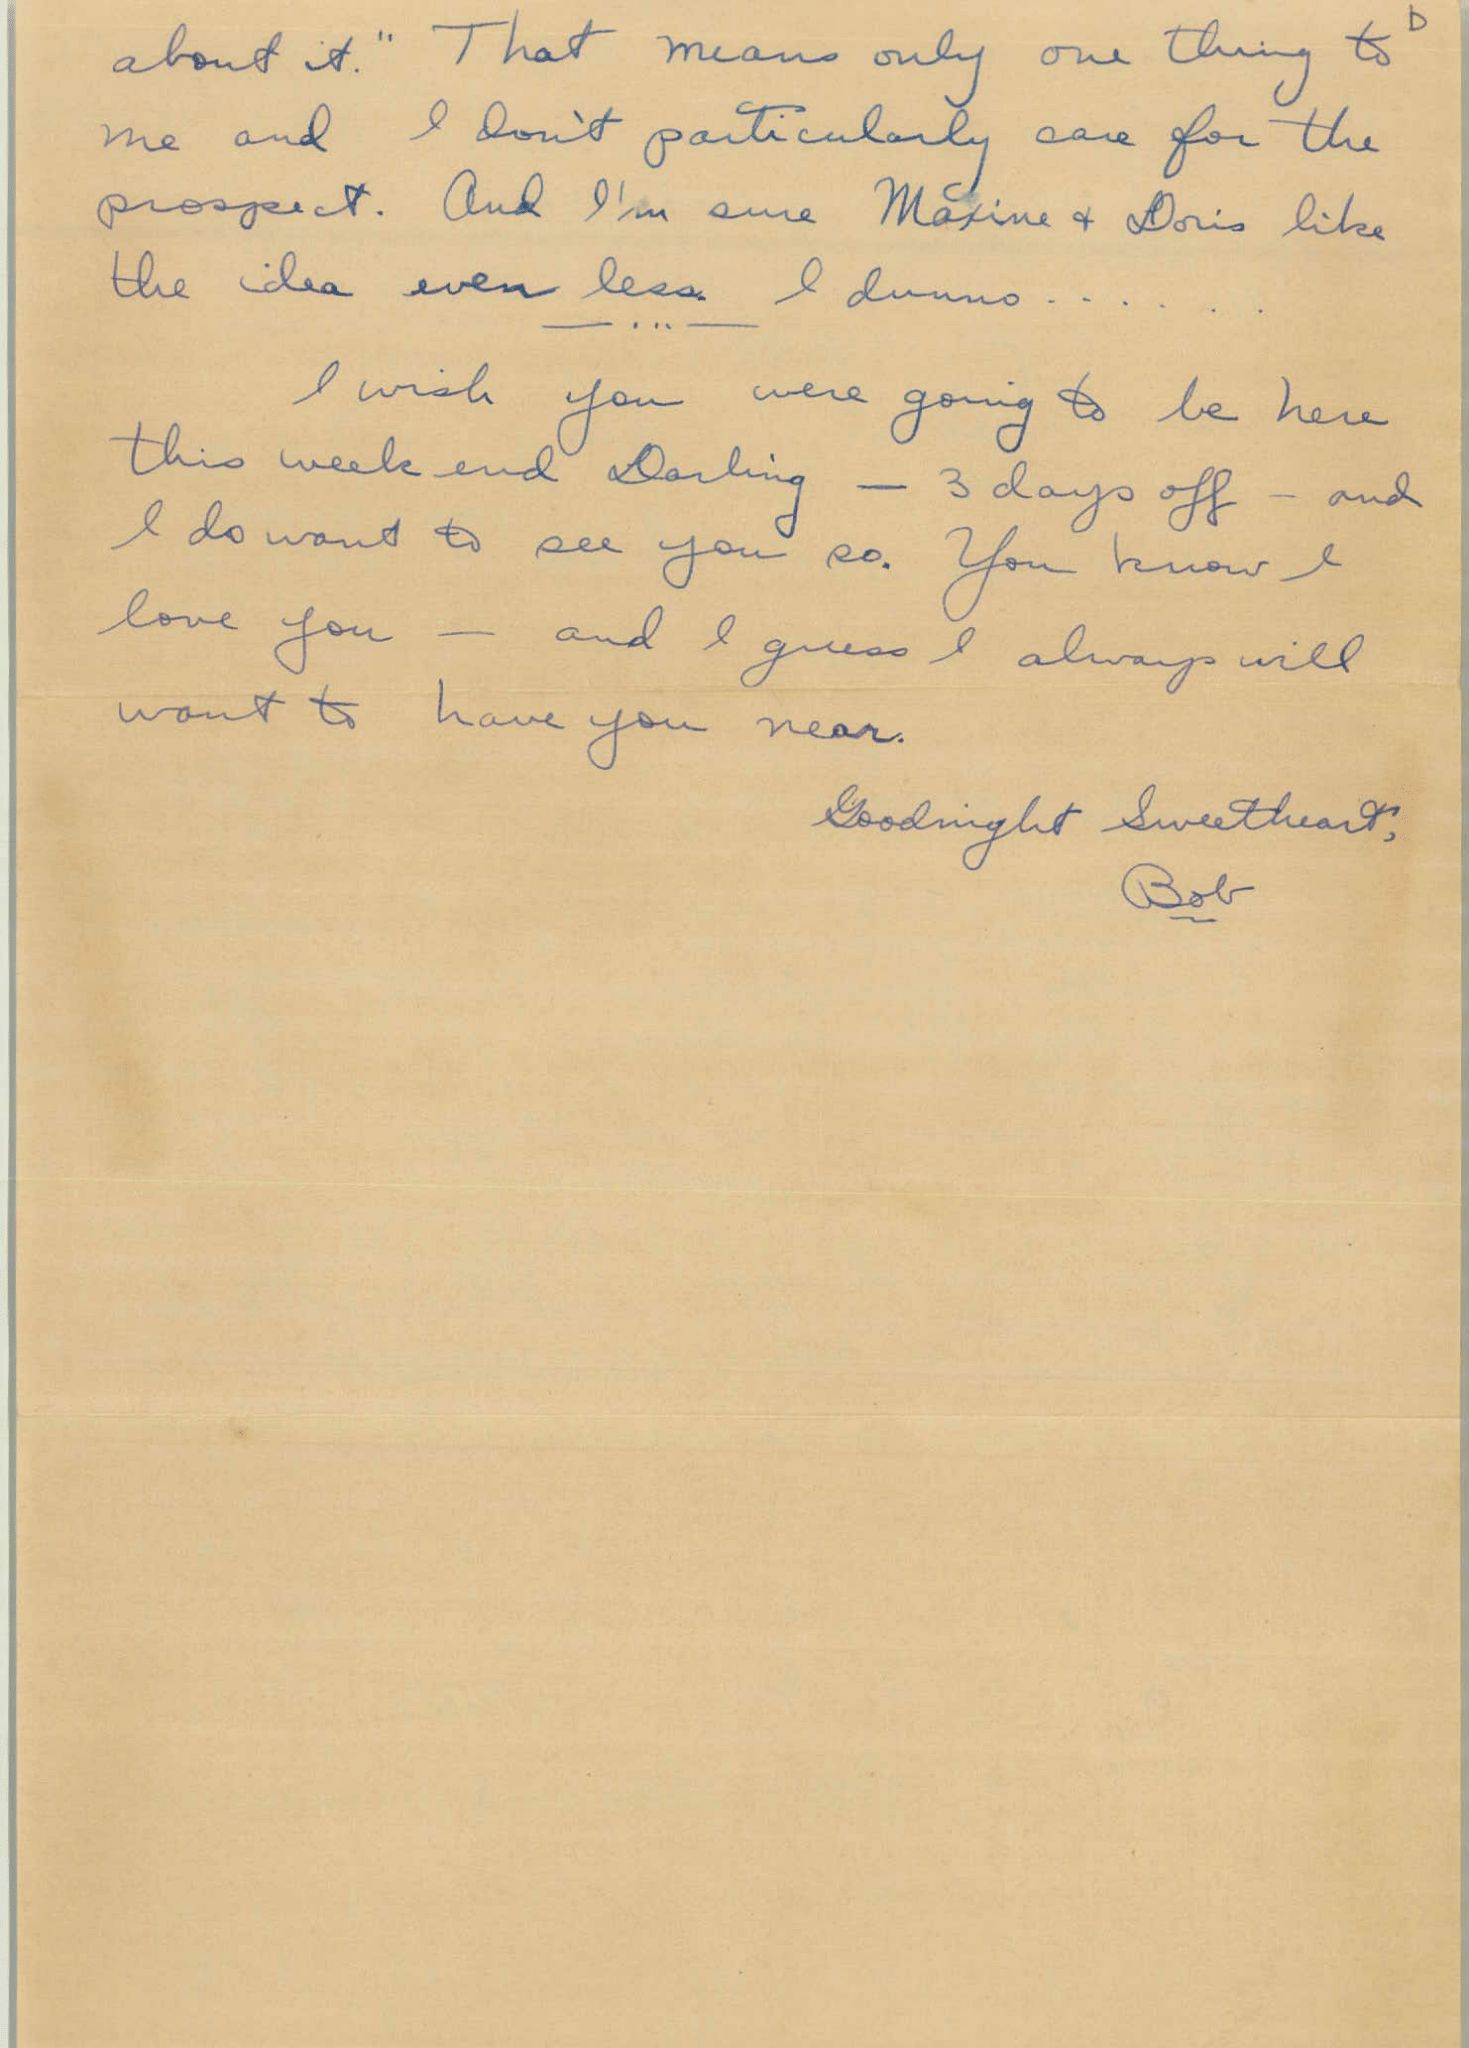 D
about it." That means only one thing to
me and I don't particularly care for the
prospect. And I'm sure Maxine & Doris like
the idea even less. I dunno . . . . . .
— ... —
I wish you were going to be here
this week end Darling — 3 days off — and
I do want to see you so. You know I
love you — and I guess I always will
want to have you near.
Goodnight Sweetheart,
Bob